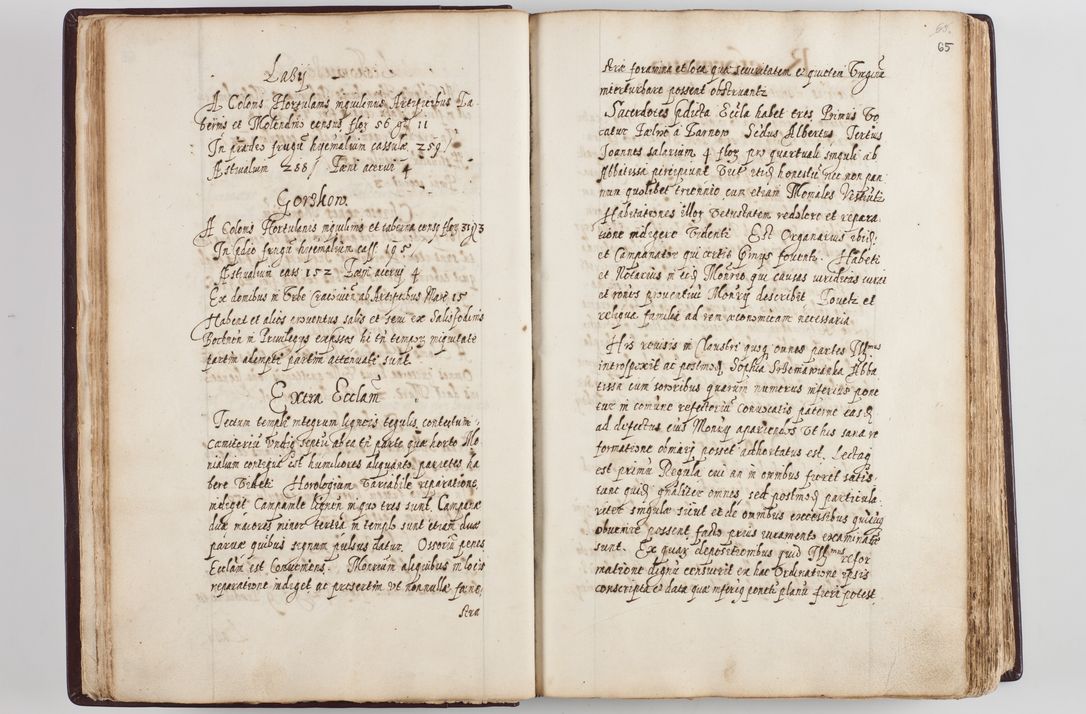 Łasy
A Colonis Hortulanis inquilinis Artificibus Ta
bernis et Molendino census flor 56 gr 11
In praedio frugum hyemalium cassulae 259
Aestivalium 288 Faeni acervi 4
Gorzkow
A Colonis Hortulanis inquilinis et taberna census flor
In praedio frugum hyemalium cass 195
Aestivalium cass 152 Faeni acervi 4
Ex domibus in Urbe Cracoviensi ab Artificibus Marc 15
Habent et alios proventus salis et sevi ex Salisfodinis
Bochnen in Privilegijs expressos hi tn temporum iniquitate
partim adempti partim attenuati sunt
Extra Ecclam
Tectum templi integrum ligneis tegulis contectum
Caemiterium undiq septum ab ea tn parte quae horto Mo
nialium contiguum est humiliores aliquanto parietes ha
bere videtur Horologium variabile reparatione
indiget Campanile ligneum in quo tres sunt Campanae
duae maiores minor tertia in templo sunt etiam duae
parvae quibus signum pulsus datur. Ossorium penes
Ecclam est Conveniens. Monrium aliquibus in locis
reparatione indiget ac praesertim ut nonnulla fene
stra
65
65
strae foramina et loca quae securitatem et quietem Virginum
interturbare possent obstruantur
Sacerdotes praedicta Eccla habet tres Primus vo
catur Felix a Tarnow Secundus Albertus Tertius
Joannes salarium 4 flor pro quartuali singuli ab
Abbatissa percipiunt victum itidem honestum nec non pan
num quolibet triennio cum etiam Moniales vestiuntur
Habitationes illorum vetustatem redolere et repara
tione indigere videntur Est Organarius ibidem
et Campanator qui certis stipendijs foventur. Habetur
et Notarius in eodem Monrio qui causas iuridicas curet
et rationes proventuum Monrij describit Fovetur et
reliqua familia ad rem oeconomicam necessaria
His revisis in Claustri quoque omnes partes Illmus
introspexit ac postmodum Sophia Abba
tissa cum sororibus quarum numerus inferius pone
tur in comune refectorium convocatis paterne eas
ad defectus eius Monrij aperiendos ut his sana re
formatione obviari posset adhortatus est. Lectaq
est primum Regula cui an in omnibus fieret satis
tunc quidem qualiter omnes sed postmodum particula
riter singulae sicut et de omnibus excessibus qui
obvenire possent facto prius iuramento examinatae
sunt. Ex quarum depositionibus quid Illmus refor
matione dignum censuerit ex hac Ordinatione ipsis
conscripta et data quae inferius ponetur planum fieri potest